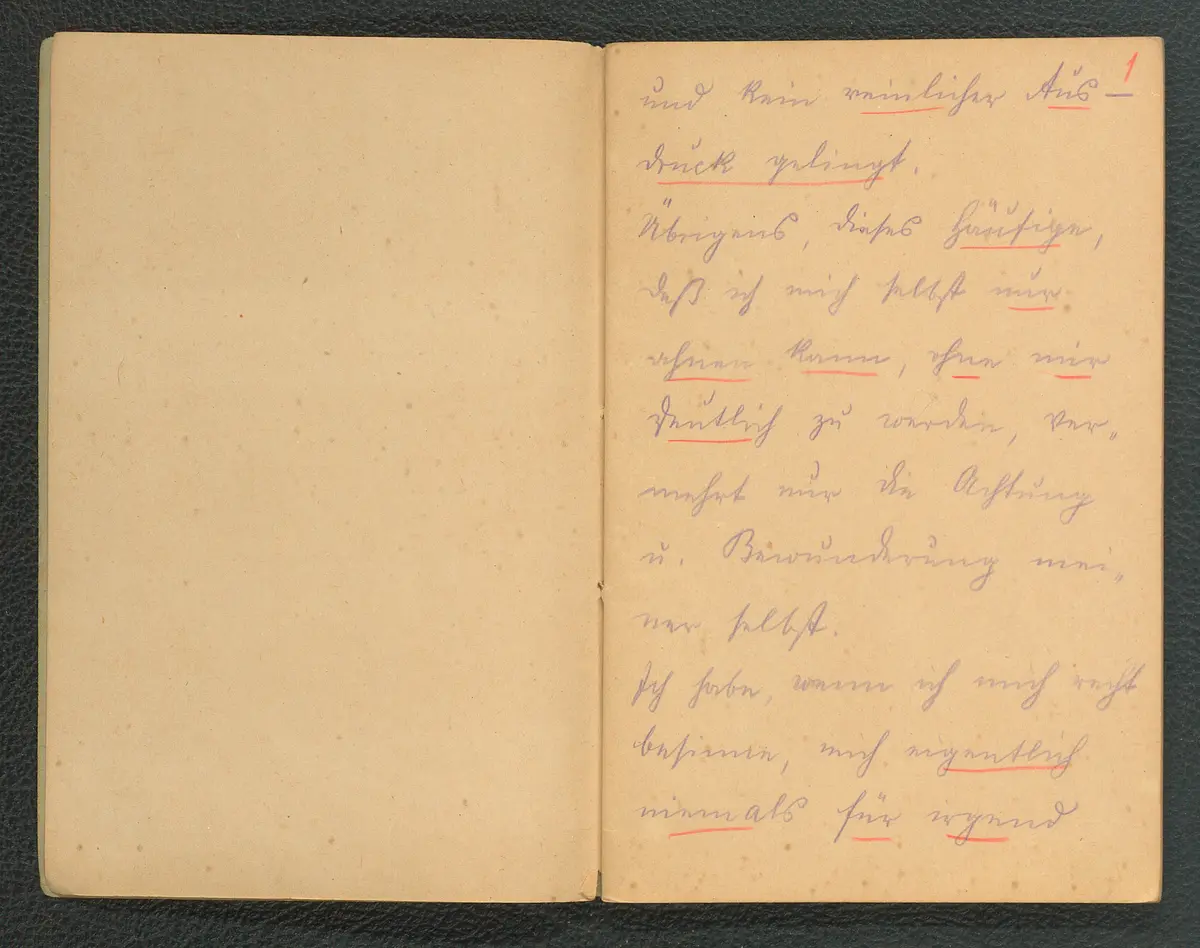 1
und kein reinlicher Aus-
druck gelingt.
Übrigens, dieses Häufige,
daß ich mich selbst nur
ahnen kann, ohne mir
deutlich zu werden, ver„
mehrt nur die Achtung
u. Bewunderung mei„
ner selbst.
Ich habe, wenn ich mich recht
besinne, mich eigentlich
niemals für irgend